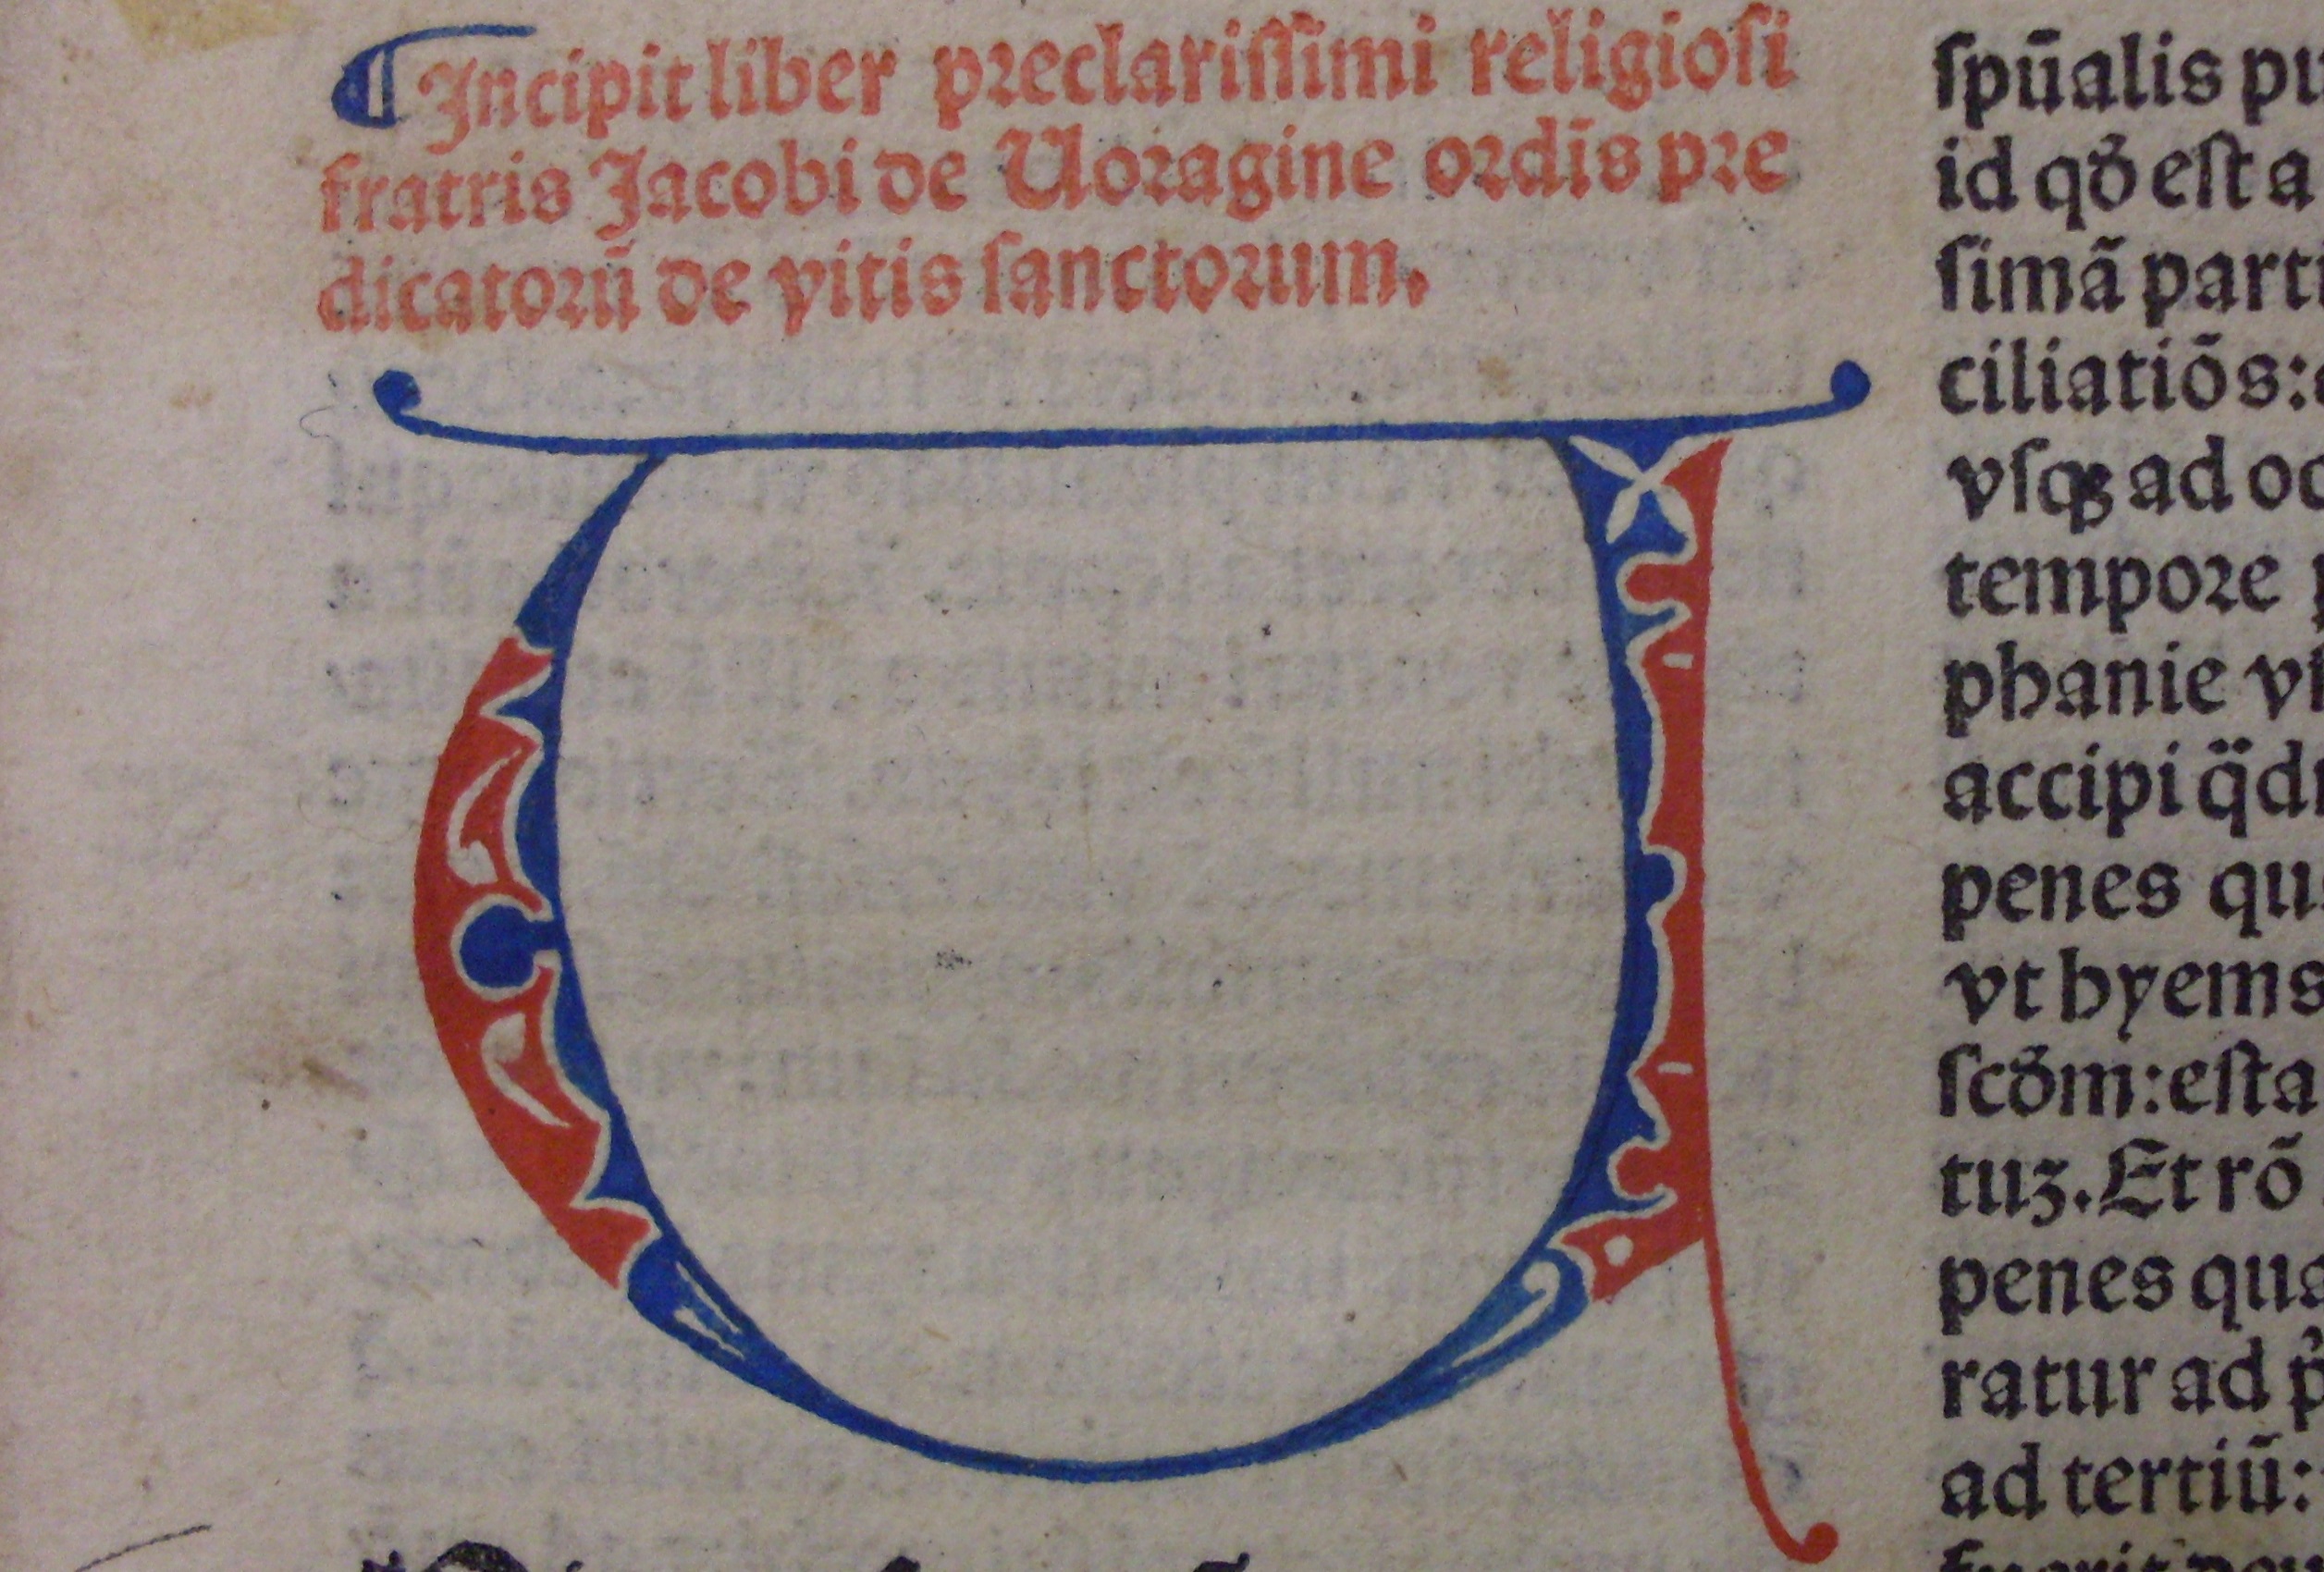 ¶Incipit liber preclarissimi religiosi
fratris Jacobi de Uoragine ordīs pre
dicatorū de vitis sanctorum.
U
spūalis
id qď est a
simā
ciliatiōs:
vsqꝫ ad
tempore
phanie
accipi
penes
vt hyems
scďm: esta
tuꝫ. Et rō
penes
ratur ad
ad tertiū: